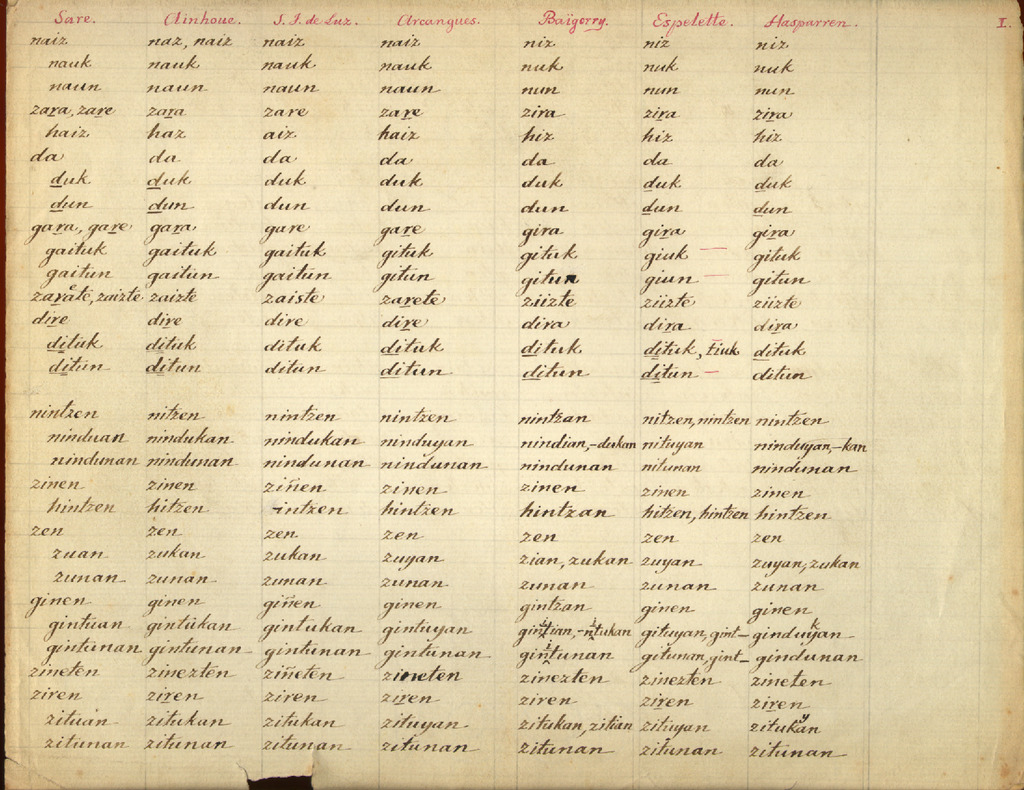 Sare. Ainhoue. S. J. de Luz. Arcangues. Baïgorry. Espelette. Hasparren. I.
naiz naz, naiz naiz naiz niz niz niz
nauk nauk nauk nauk nuk nuk nuk
naun naun naun naun nun nun nun
zara, zare zara zare zare zira zira zira
haiz haz aiz haiz hiz hiz hiz
da da da da da da da
duk duk duk duk duk duk duk
dun dun dun dun dun dun dun
gara, gare gara gare gare gira gira gira
gaituk gaituk gaituk gituk gituk giuk — gituk
gaitun gaitun gaitun gitun gitun giun — gitun
zarete, zaizte zaizte zaiste zarete ziizte ziizte ziizte
dire dire dire dire dira dira dira
dituk dituk dituk dituk dituk dituk, tiuk dituk
ditun ditun ditun ditun ditun ditun — ditun
nintzen nitzen nintzen nintzen nintzan nitzen, nintzen nintzen
ninduan nindukan nindukan ninduyan nindian, -dukan nituyan ninduyan, -kan
nindunan nindunan nindunan nindunan nindunan nitunan nindunan
zinen zinen ziñen zinen zinen zinen zinen
hintzen hitzen intzen hintzen hintzan hitzen, hintzen hintzen
zen zen zen zen zen zen zen
zuan zukan zukan zuyan zian, zukan zuyan zuyan, zukan
zunan zunan zunan zunan zunan zunan zunan
ginen ginen giñen ginen gintzan ginen ginen
gintuan gintukan gintukan gintuyan gintian, -ntukan gituyan, gint- ginduyan k
gintunan gintunan gintunan gintunan gintunan gitunan, gint- gindunan
zineten zinezten ziñeten zineten zinezten zinezten zineten
ziren ziren ziren ziren ziren ziren ziren
zituan zitukan zitukan zituyan zitukan, zitian zituyan zitukan y
zitunan zitunan zitunan zitunan zitunan zitunan zitunan